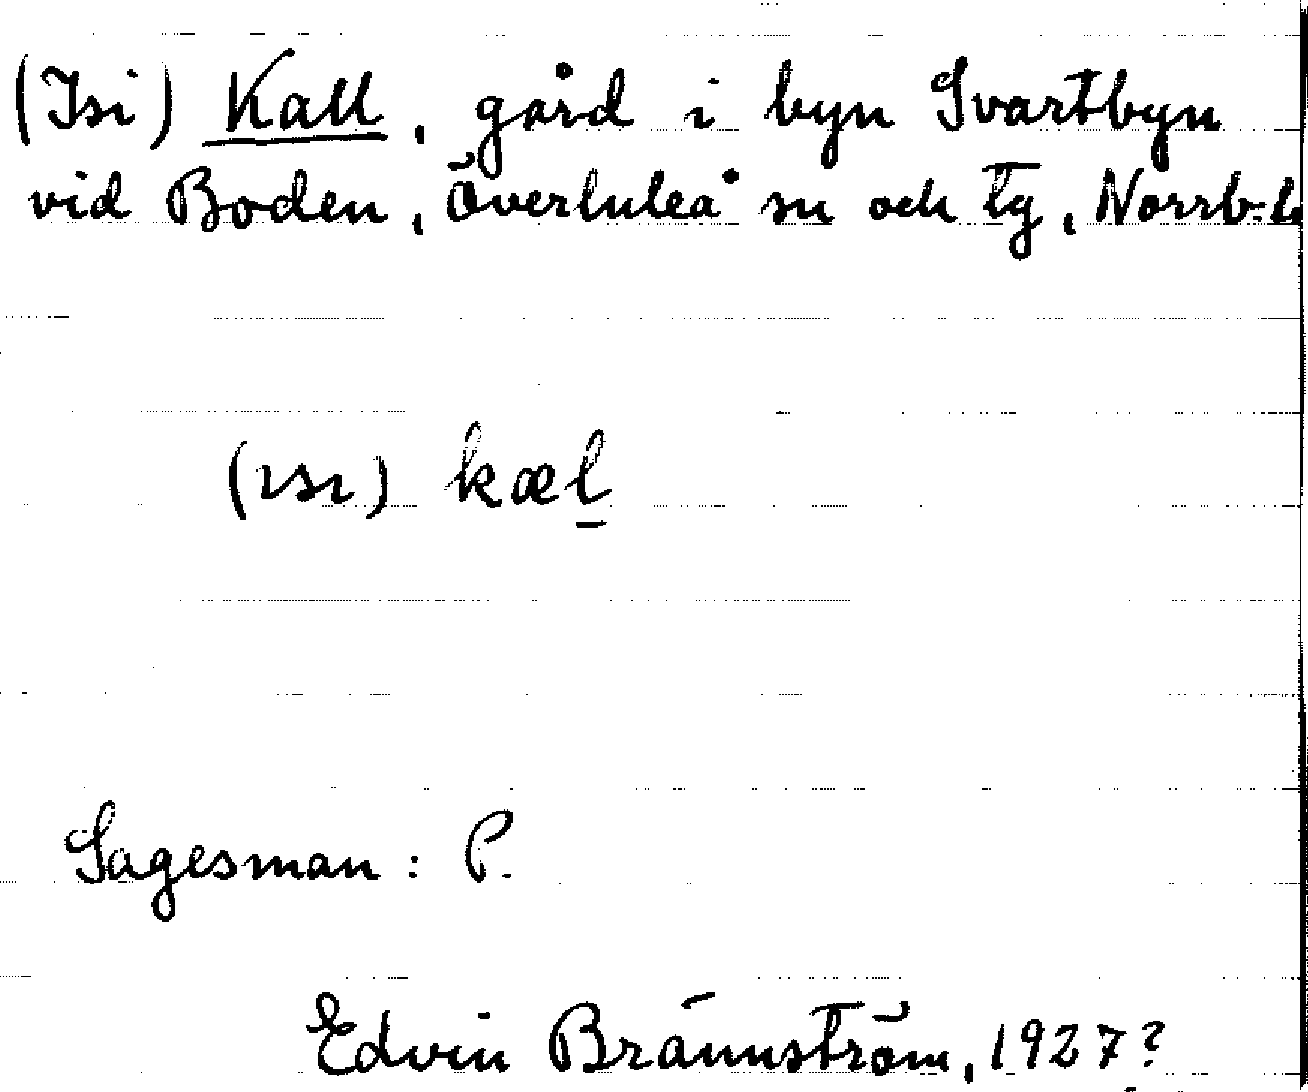 (Isi) Kall, gård i byn Svartbyn
vid Boden, Överluleå sn och tg, Norrb:s
(ısı) kæl̲
Sagesman: P.
Edvin Brännström, 1927?